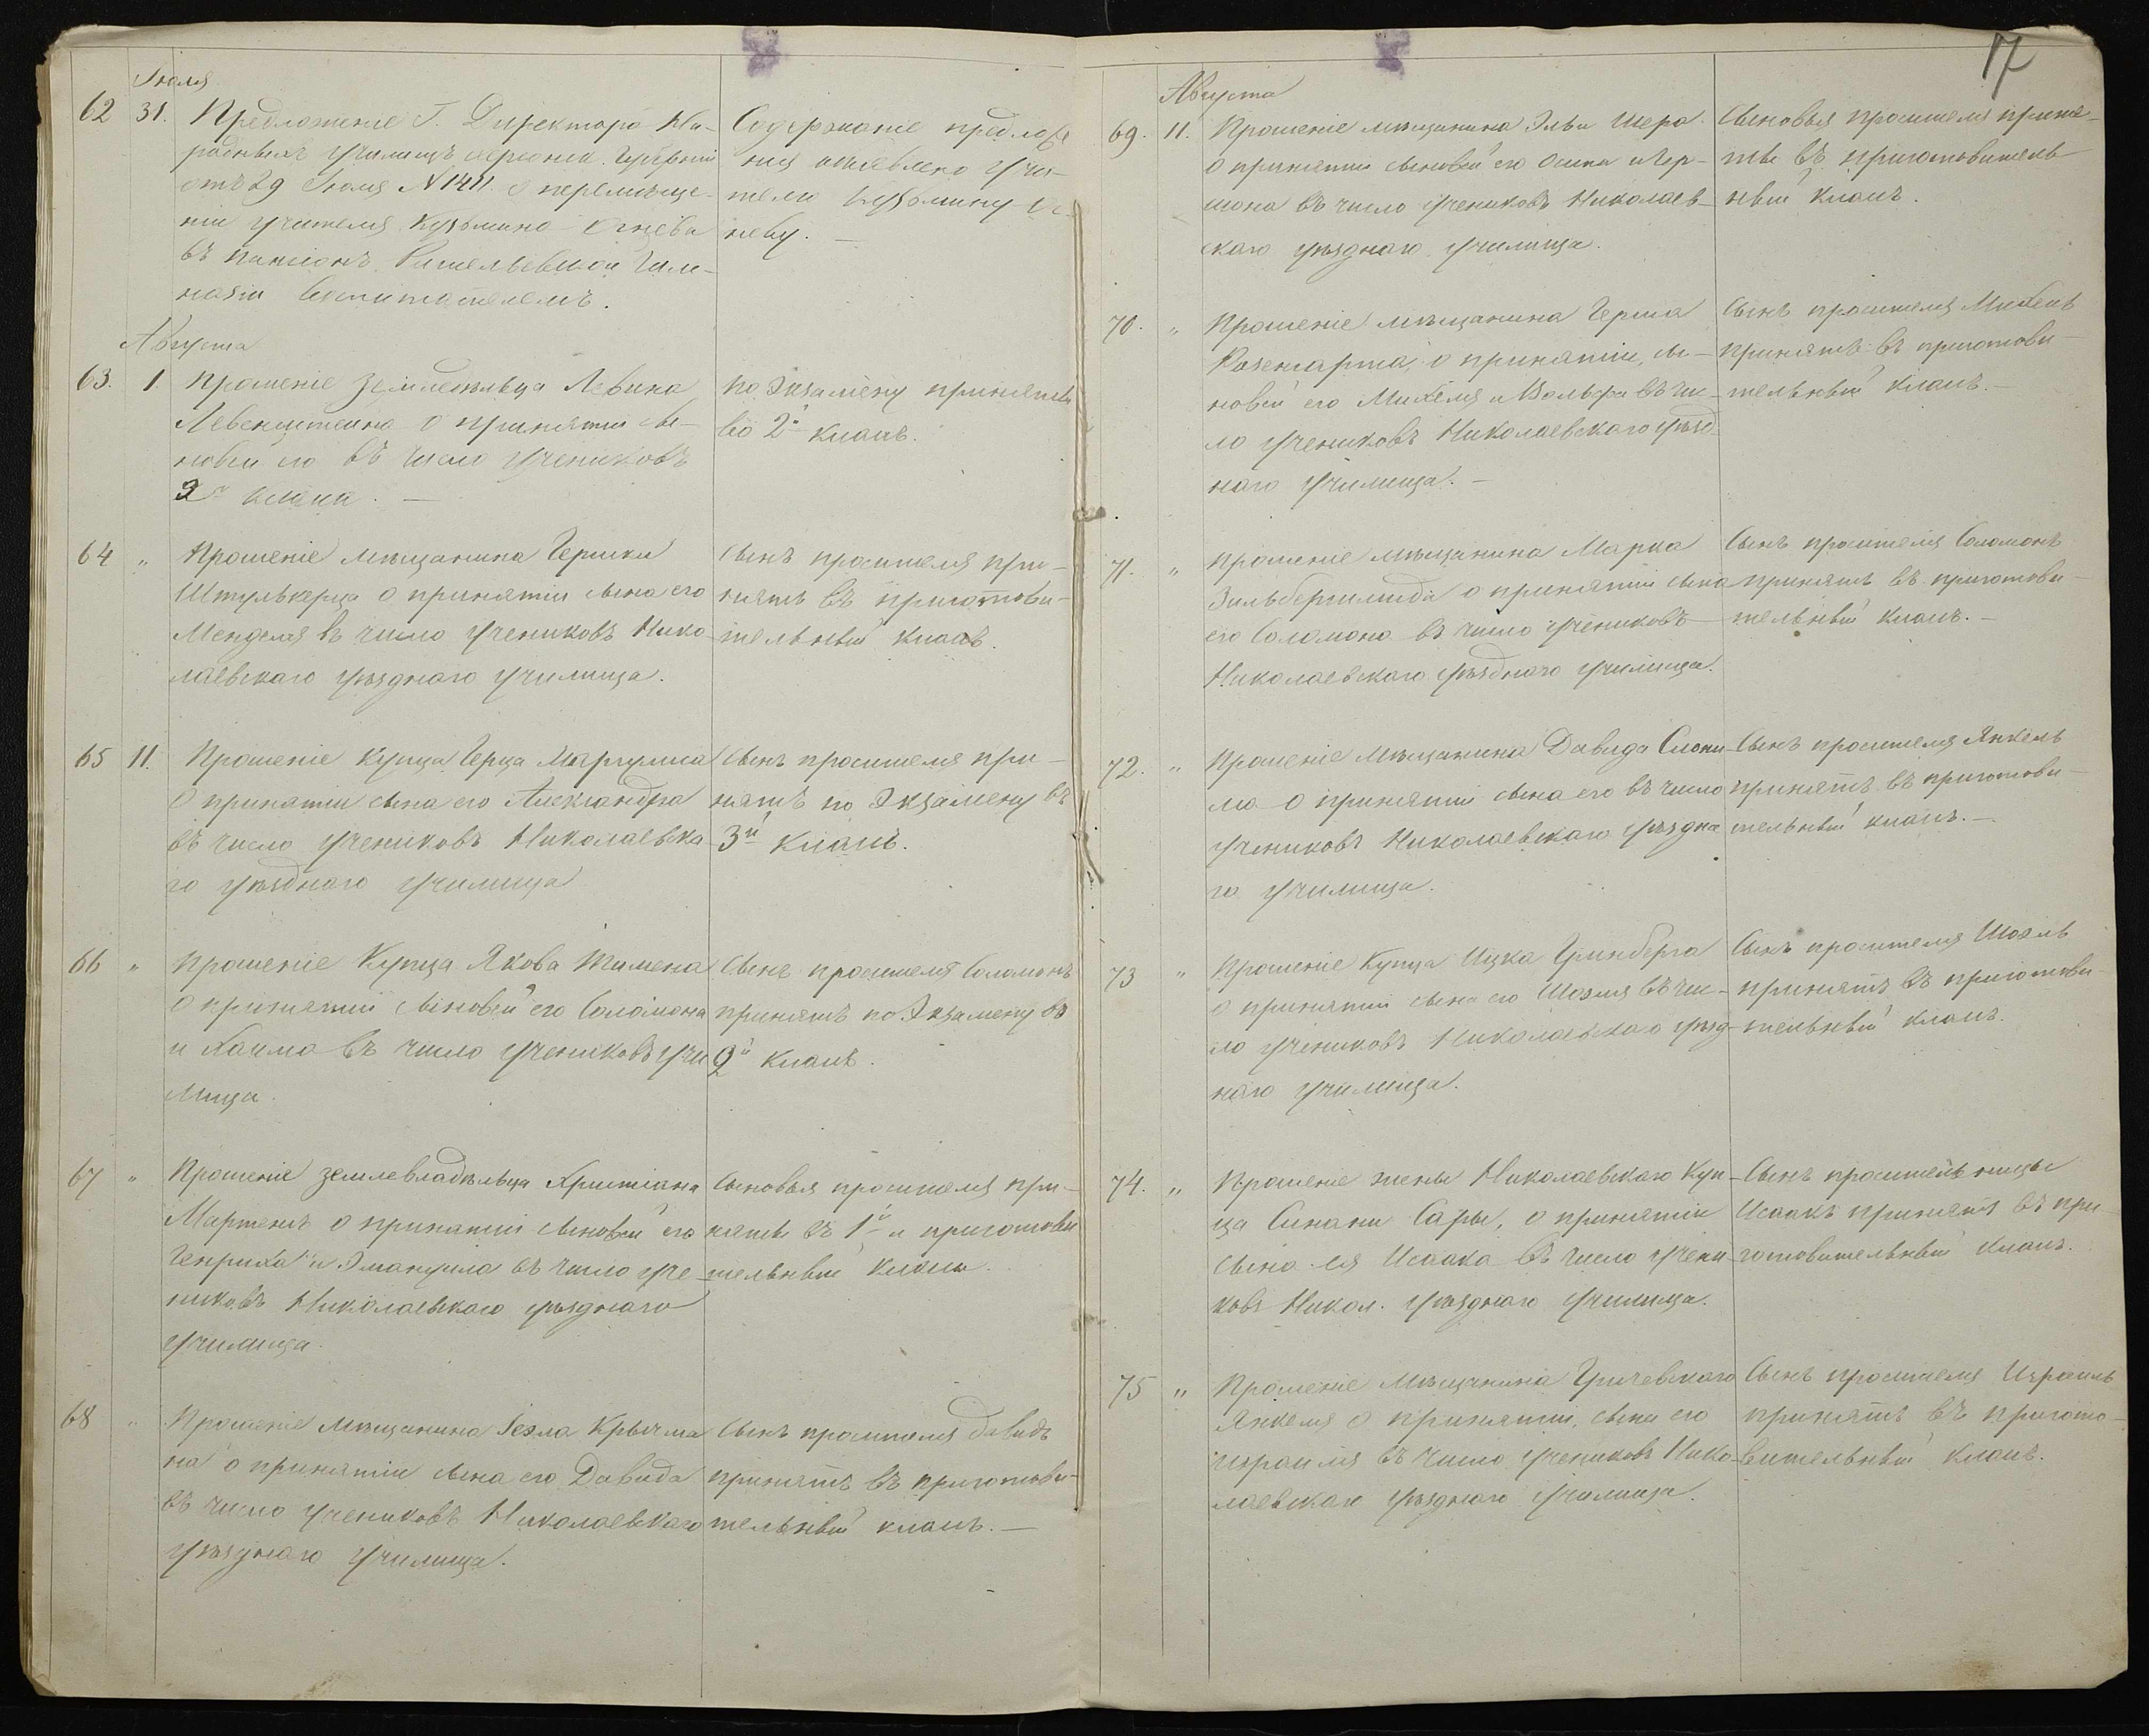 Іюля
62 31. Предложеніе Г. Директора На-
родныхъ училищъ Херсонск. Губерніи
отъ 29 Іюля N 1411. о перемѣще-
ніи учителя Кузьмина-
въ пансіонъ Ришельевской Гим-
назіи воспитателемъ.
Содержаніе предложе
нія объявлено учи-
телю Кузьмину-Ог-
неву. —
Августа
63. 1. Прошеніе землевладѣльца Левина
Левенштейна о принятіи сы-
новей его въ число учениковъ
2го класса. —
По экзамену приняты
во 2й классъ.
64 „ Прошеніе мѣщанина Гершки
о принятіи сына его
Менделя въ число учениковъ Нико
лаевскаго уѣзднаго училища.
Сынъ просителя при-
нятъ въ приготови-
тельный классъ.
65 11. Прошеніе купца Герца Маргулиса
о принятіи сына его Александра
въ число учениковъ Николаевска
го уѣзднаго училища
Сынъ просителя при-
нятъ по экзамену въ
3й классъ.
66 „ Прошеніе Купца Якова
о принятіи сыновей его Соломона
и Хаима въ число учениковъ учи
лища.
Сынъ просителя Соломонъ
принятъ по экзамену во
2й классъ.
67 „ Прошеніе землевладѣльца Христіана
Мартенсъ о принятіи сыновей его
Генриха и Эмануила въ число уче-
никовъ Николаевскаго уѣзднаго
училища.
Сыновья просителя при-
няты въ 1й и приготови
тельный классы.
68 „ Прошеніе мѣщанина Крычма
на о принятіи сына его Давида
въ число учениковъ Николаевскаго
уѣзднаго училища.
Сынъ просителя Давидъ
принятъ въ приготови-
тельный классъ. —
17
Августа
69. 11. Прошеніе мѣщанина Эльи Шера
о принятіи сыновей его Осипа и Гер-
шона въ число учениковъ Николаев-
скаго уѣзднаго училища.
Сыновья просителя приня-
ты въ приготовитель-
ный классъ.
70. „ Прошеніе мѣщанина Герша
Розенгарта, о принятіи, сы-
новей его Михеля и Вольфа въ чис-
ло учениковъ Николаевскаго уѣзд-
наго училища. —
Сынъ просителя Михель
принятъ въ приготови-
тельный классъ. —
71. „ Прошеніе мѣщанина Марка
Зильбершмида о принятіи сына
его Соломона въ число учениковъ
Николаевскаго уѣзднаго училища.
Сынъ просителя Соломонъ
принятъ въ приготови-
тельный классъ. —
72. „ Прошеніе мѣщанина Давида Слони-
ма о принятіи сына его въ число
учениковъ Николаевскаго уѣздна
го училища.
Сынъ просителя Янкель
принятъ въ приготови-
тельный классъ. —
73 „ Прошеніе Купца Ицка Гринберга
о принятіи сына его Шоэля въ чис-
ло учениковъ Николаевскаго уѣзд-
наго училища.
Сынъ просителя Шоэль
принятъ въ приготови-
тельный классъ.
74. „ Прошеніе жены Николаевскаго Куп-
ца Синани Сары, о принятіи
сына ея Исаака въ число учени
ковъ Никол. уѣзднаго училища.
Сынъ просительницы
Исаакъ принятъ въ при-
готовительный классъ.
75 „ Прошеніе мѣщанина Гричевскаго
Янкеля о принятіи, сына его
Израиля въ число учениковъ Нико-
лаевскаго уѣзднаго училища.
Сынъ просителя Израиль
принятъ въ пригото-
вительный классъ.